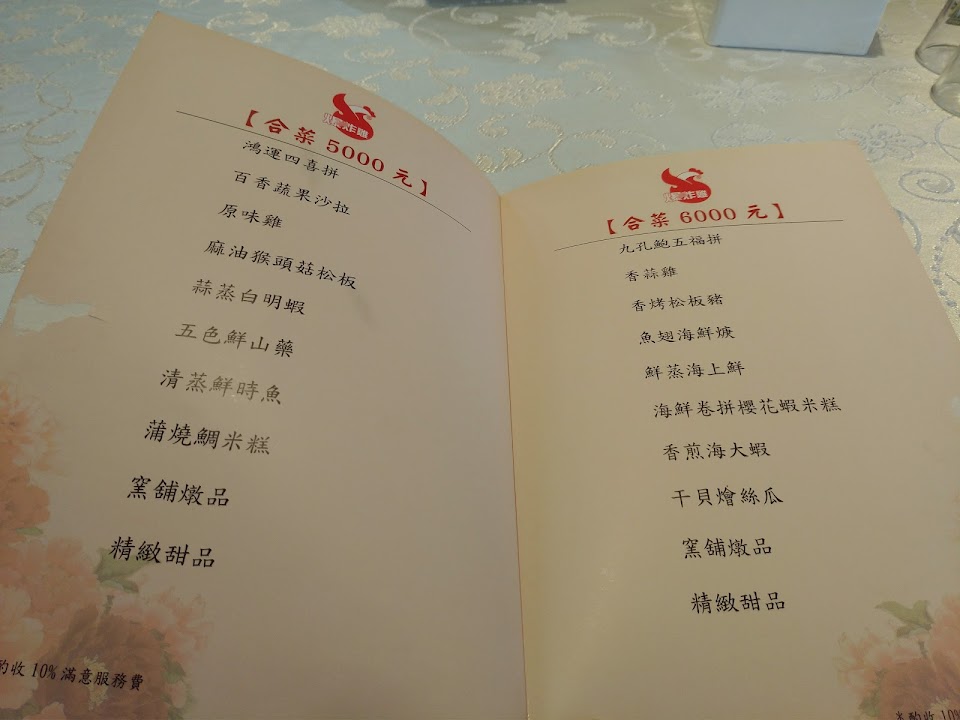 【合菜 5000 元】
鴻運四喜拼
百香蔬果沙拉
原味雞
麻油猴頭菇松板
蒜蒸白明蝦
五色鮮山藥
清蒸鮮時魚
蒲燒鯛米糕
窯舖燉品
精緻甜品
酌收 10% 滿意服務費
【合菜 6000 元】
九孔鮑五福拼
香蒜雞
香烤松板豬
魚翅海鮮焿
鮮蒸海上鮮
海鮮卷拼櫻花蝦米糕
香煎海大蝦
干貝燴絲瓜
窯舖燉品
精緻甜品
酌收 10%